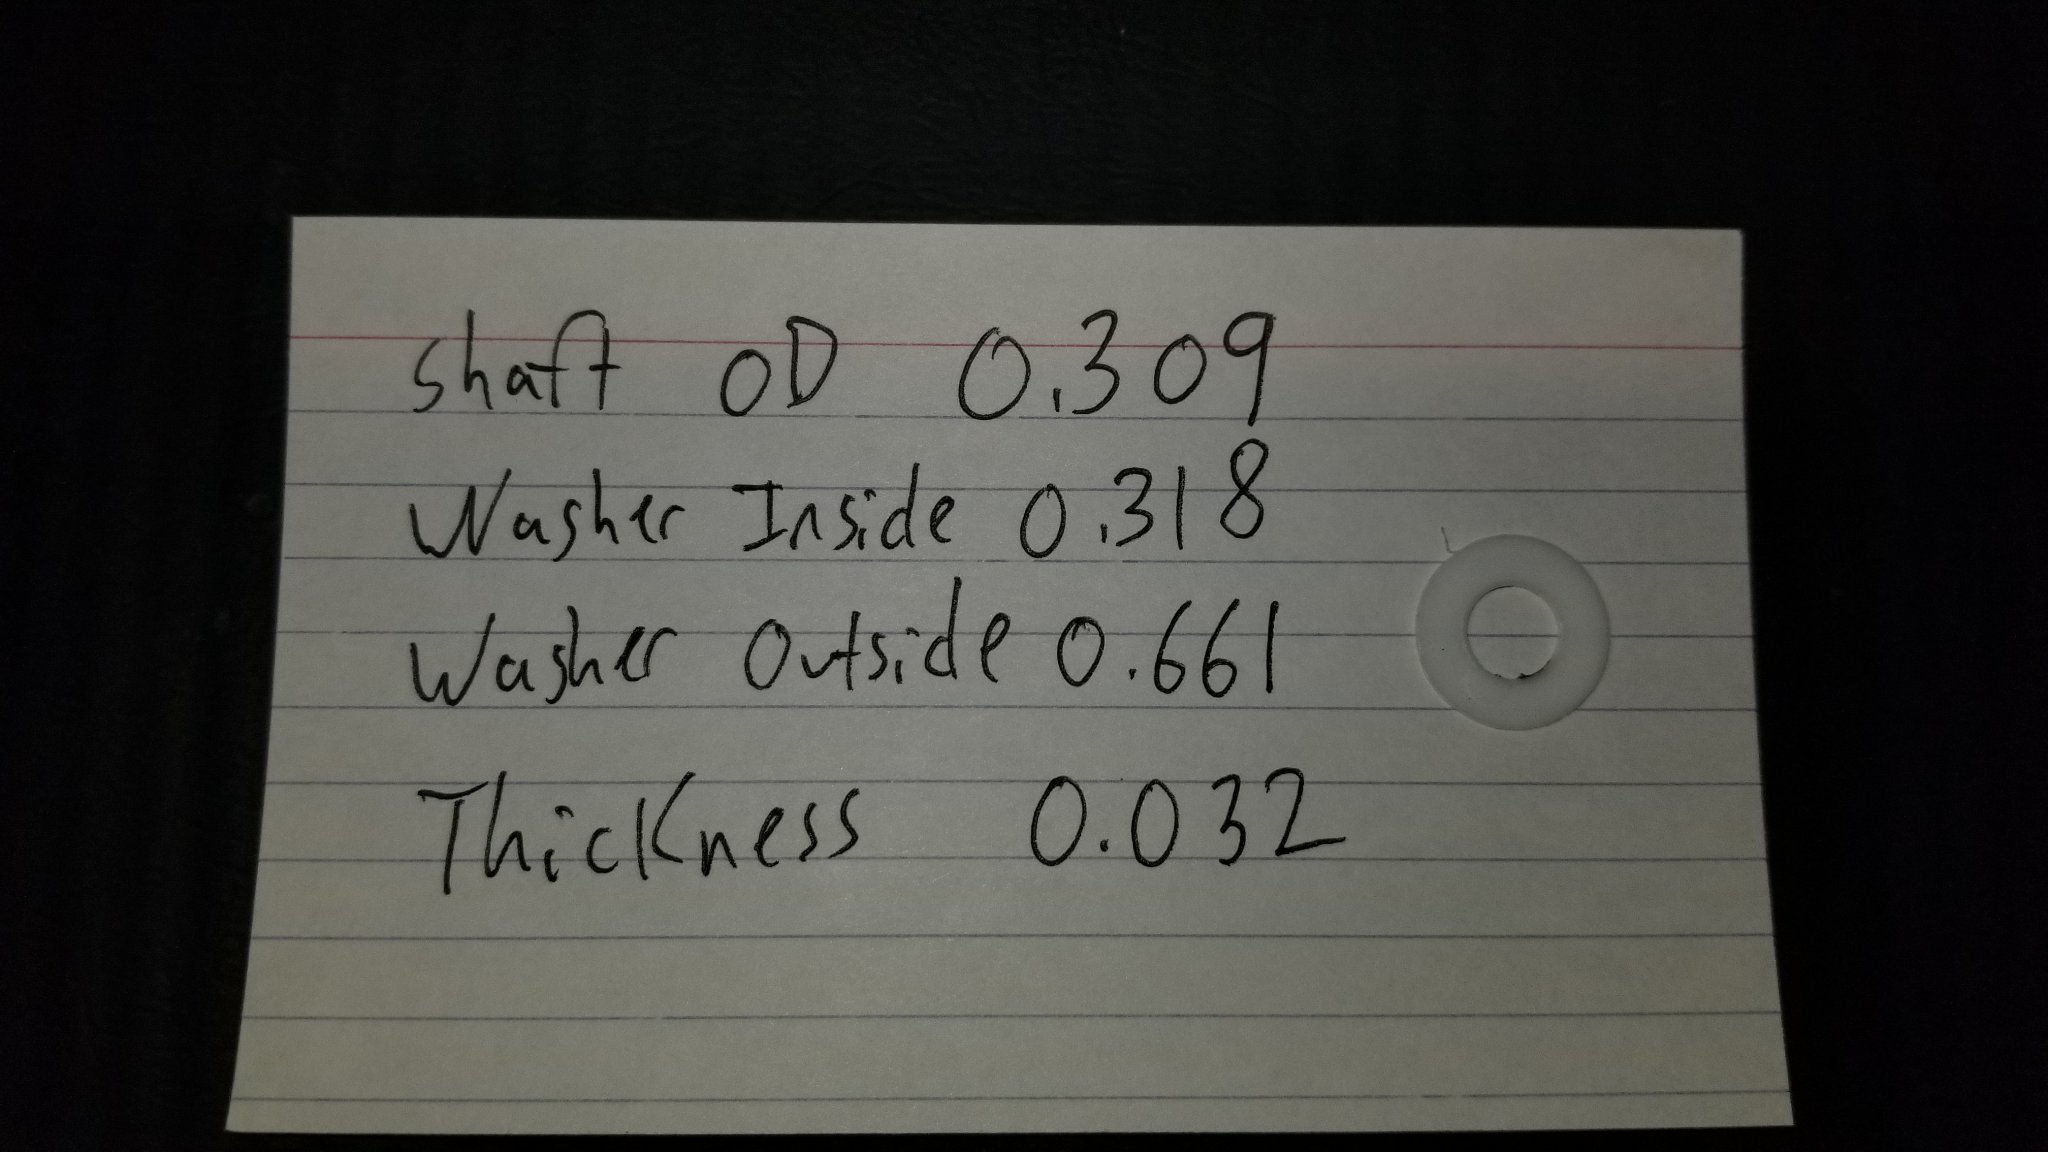 Shaft OD 0.309
Washer Inside 0.318
Washer Outside 0.661
Thickness 0.032